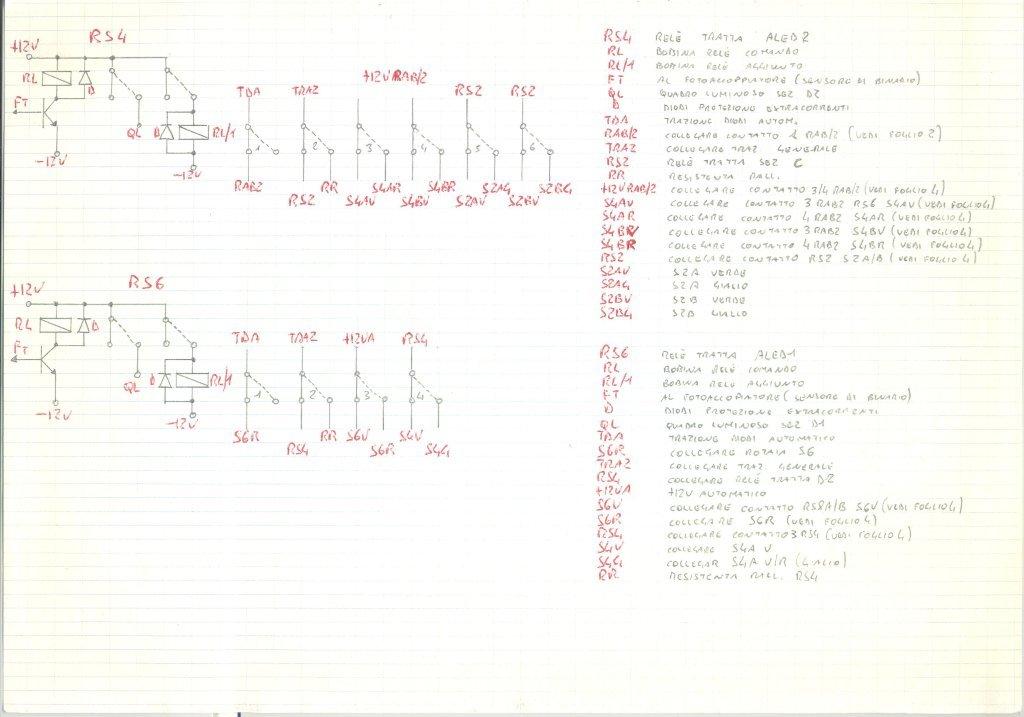 RS4
+12V
RL
D
FT
-12V
QL
D
RL/1
-12V
TDA
TRAZ
+12VRAB/2
RSZ
RSZ
1
2
3
4
5
6
RABZ
RSZ
RR
S4AV
S4AR
S4BV
S4BR
SZAV
SZAG
SZBV
SZBG
RS4 RELÈ TRATTA ALED2
RL BOBINA RELÈ COMANDO
RL/1 BOBINA RELÈ AGGIUNTO
FT AL FOTOACCOPPIATORE (SENSORE DI BINARIO)
QL QUADRO LUMINOSO SEZ D2
D DIODI PROTEZIONE EXTRACORRENTI
TDA TRAZIONE DIODI AUTOM.
RAB/2 COLLEGARE CONTATTO 1 RAB/2 (VEDI FOGLIO 2)
TRAZ COLLEGARE TRAZ GENERALE
RSZ RELÈ TRATTA SEZ C
RR RESISTENZA RALL.
+12VRAB/2 COLLEGARE CONTATTO 3/4 RAB/2 (VEDI FOGLIO 4)
S4AV COLLEGARE CONTATTO 3 RABZ RS6 S4AV (VEDI FOGLIO 4)
S4AR COLLEGARE CONTATTO 4 RABZ S4AR (VEDI FOGLIO 4)
S4BV COLLEGARE CONTATTO 3 RABZ S4BV (VEDI FOGLIO 4)
S4BR COLLEGARE CONTATTO 4 RABZ S4BR (VEDI FOGLIO 4)
RSZ COLLEGARE CONTATTO RSZ SZA/B (VEDI FOGLIO 4)
SZAV SZA VERDE
SZAG SZA GIALLO
SZBV SZB VERDE
SZBG SZB GIALLO
RS6
+12V
RL
D
FT
-12V
QL
D
RL/1
-12V
TDA
TRAZ
+12VA
RS4
1
2
3
4
S6R
RS4
RR
S6V
S6R
S4V
S4G
RS6 RELÈ TRATTA ALED1
RL BOBINA RELÈ COMANDO
RL/1 BOBINA RELÈ AGGIUNTO
FT AL FOTOACCOPIATORE (SENSORE DI BINARIO)
D DIODI PROTEZIONE EXTRACORRENTI
QL QUADRO LUMINOSO SEZ D1
TDA TRAZIONE DIODI AUTOMATICO
S6R COLLEGARE ROTAIA S6
TRAZ COLLEGARE TRAZ GENERALE
RS4 COLLEGARE RELÈ TRATTA D2
+12VA +12V AUTOMATICO
S6V COLLEGARE CONTATTO RS8A/B S6V (VEDI FOGLIO 4)
S6R COLLEGARE S6R (VEDI FOGLIO 4)
RS4 COLLEGARE CONTATTO 3 RS4 (VEDI FOGLIO 4)
S4V COLLEGARE S4A V
S4G COLLEGAR S4A V/R (GIALLO)
RR RESISTENZA RALL. RS4